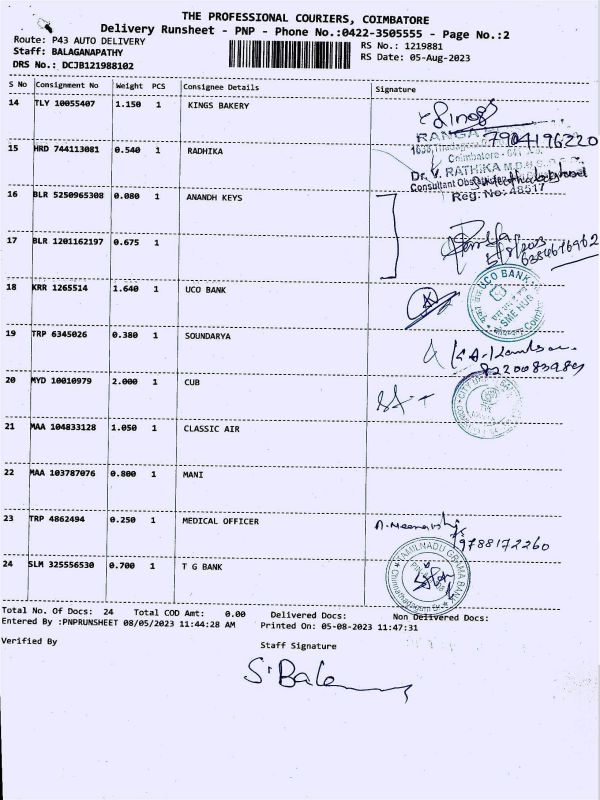 THE PROFESSIONAL COURIERS, COIMBATORE
Delivery Runsheet - PNP - Phone No.:0422-3505555 - Page No.:2
Route: P43 AUTO DELIVERY
RS No.: 1219881
Staff: BALAGANAPATHY
RS Date: 05-Aug-2023
DRS No.: DCJB121988102
S No Consignment No Weight PCS Consignee Details Signature
14 TLY 10055407 1.150 1 KINGS BAKERY
RANGA
7904196220
15 HRD 744113081 0.540 1 RADHIKA
Coimbatore - 641
Dr. V. RATHIKA M.B.B.S.
Consultant Obs
Reg. No: 48517
16 BLR 5250965308 0.080 1 ANANDH KEYS
17 BLR 1201162197 0.675 1
5/8/2023
6384676962
18 KRR 1265514 1.640 1 UCO BANK
UCO BANK
SME HUB
19 TRP 6345026 0.380 1 SOUNDARYA
8220083989
20 MYD 10010979 2.000 1 CUB
21 MAA 104833128 1.050 1 CLASSIC AIR
22 MAA 103787076 0.800 1 MANI
23 TRP 4862494 0.250 1 MEDICAL OFFICER
9788172260
24 SLM 325556530 0.700 1 T G BANK
TAMILNADU GRAMA BANK
Total No. Of Docs: 24 Total COD Amt: 0.00 Delivered Docs: Non Delivered Docs:
Entered By :PNPRUNSHEET 08/05/2023 11:44:28 AM Printed On: 05-08-2023 11:47:31
Verified By
Staff Signature
S.Bala